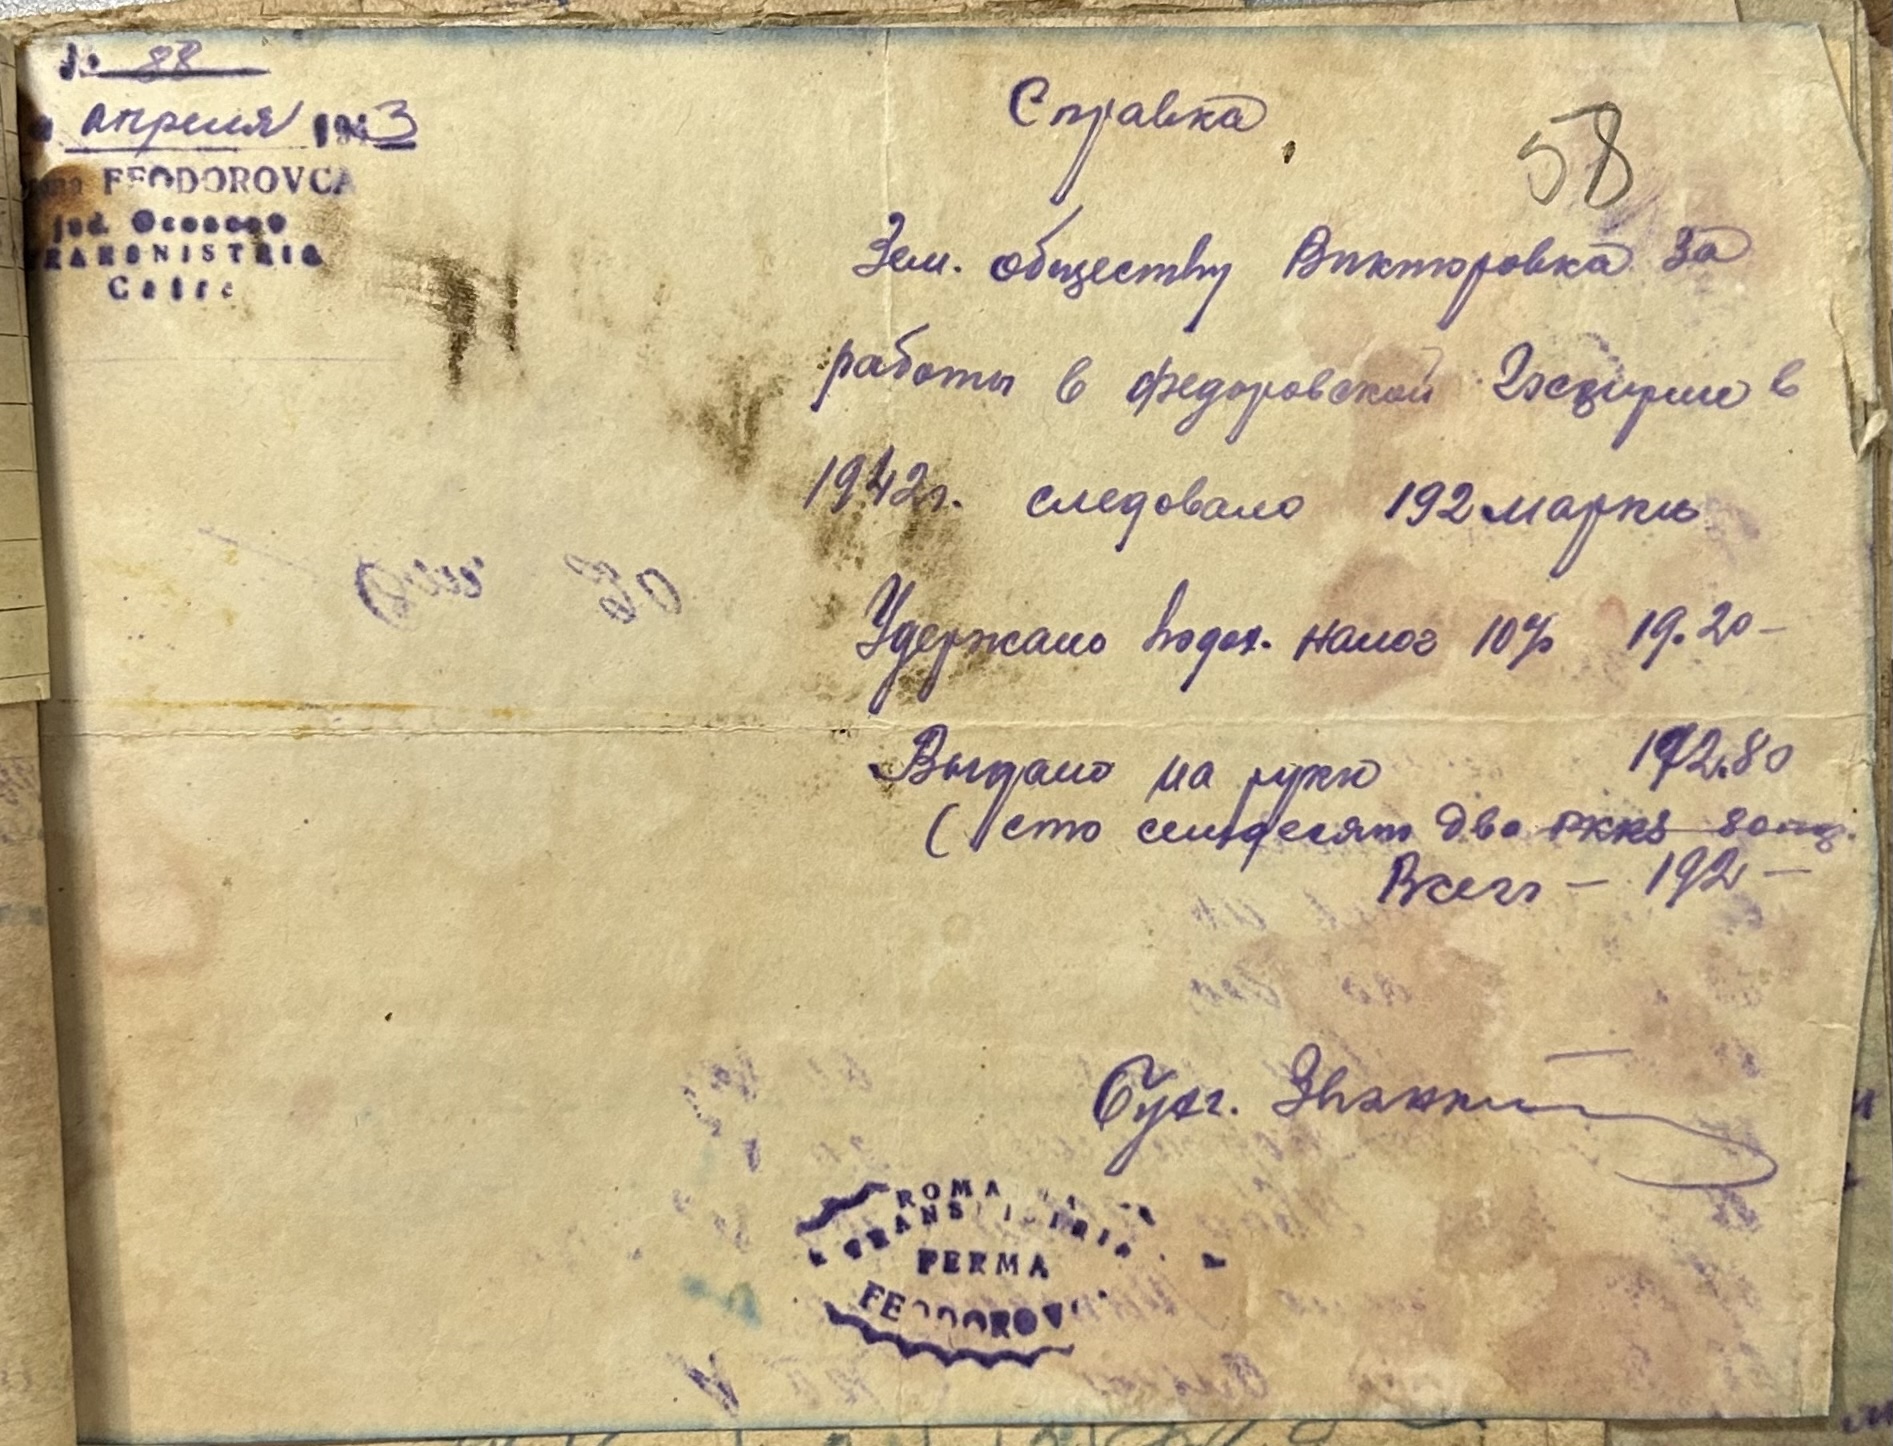 № 88
апреля 1943
FEODOROVCA
jud. Oceacov
TRANSNISTRIA
Catre
Справка
58
Зем. обществу Викторовка за
работы в Федоровской Экономие в
1942г. следовало 192 марки
Удержано подох. налог 10% 19.20-
Выдано на руки 172.80
(сто семдесят два РККS 80пф.
Всего - 192 -
Бухг.
ROMA
TRANSNISTRIA
FERMA
FEODOROV